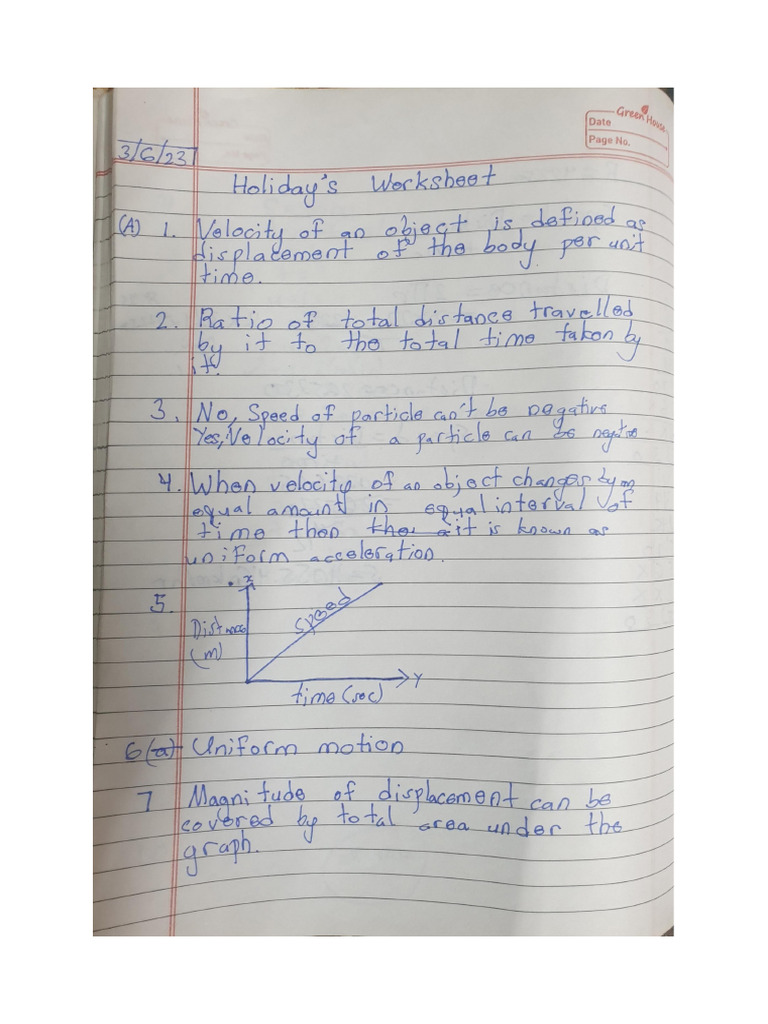 Green House
Date
Page No.
3/6/23
Holiday's Worksheet
(A) 1. Velocity of an object is defined as
displacement of the body per unit
time.
2. Ratio of total distance travelled
by it to the total time taken by
it.
3. No, Speed of particle can't be negative
Yes, Velocity of a particle can be
4. When velocity of an object changes by
equal amount in equal interval of
time then the it is known as
uniform acceleration.
5.
x
Distance
(m)
Speed
Y
time (sec)
6 (a) Uniform motion
7 Magnitude of displacement can be
covered by total area under the
graph.